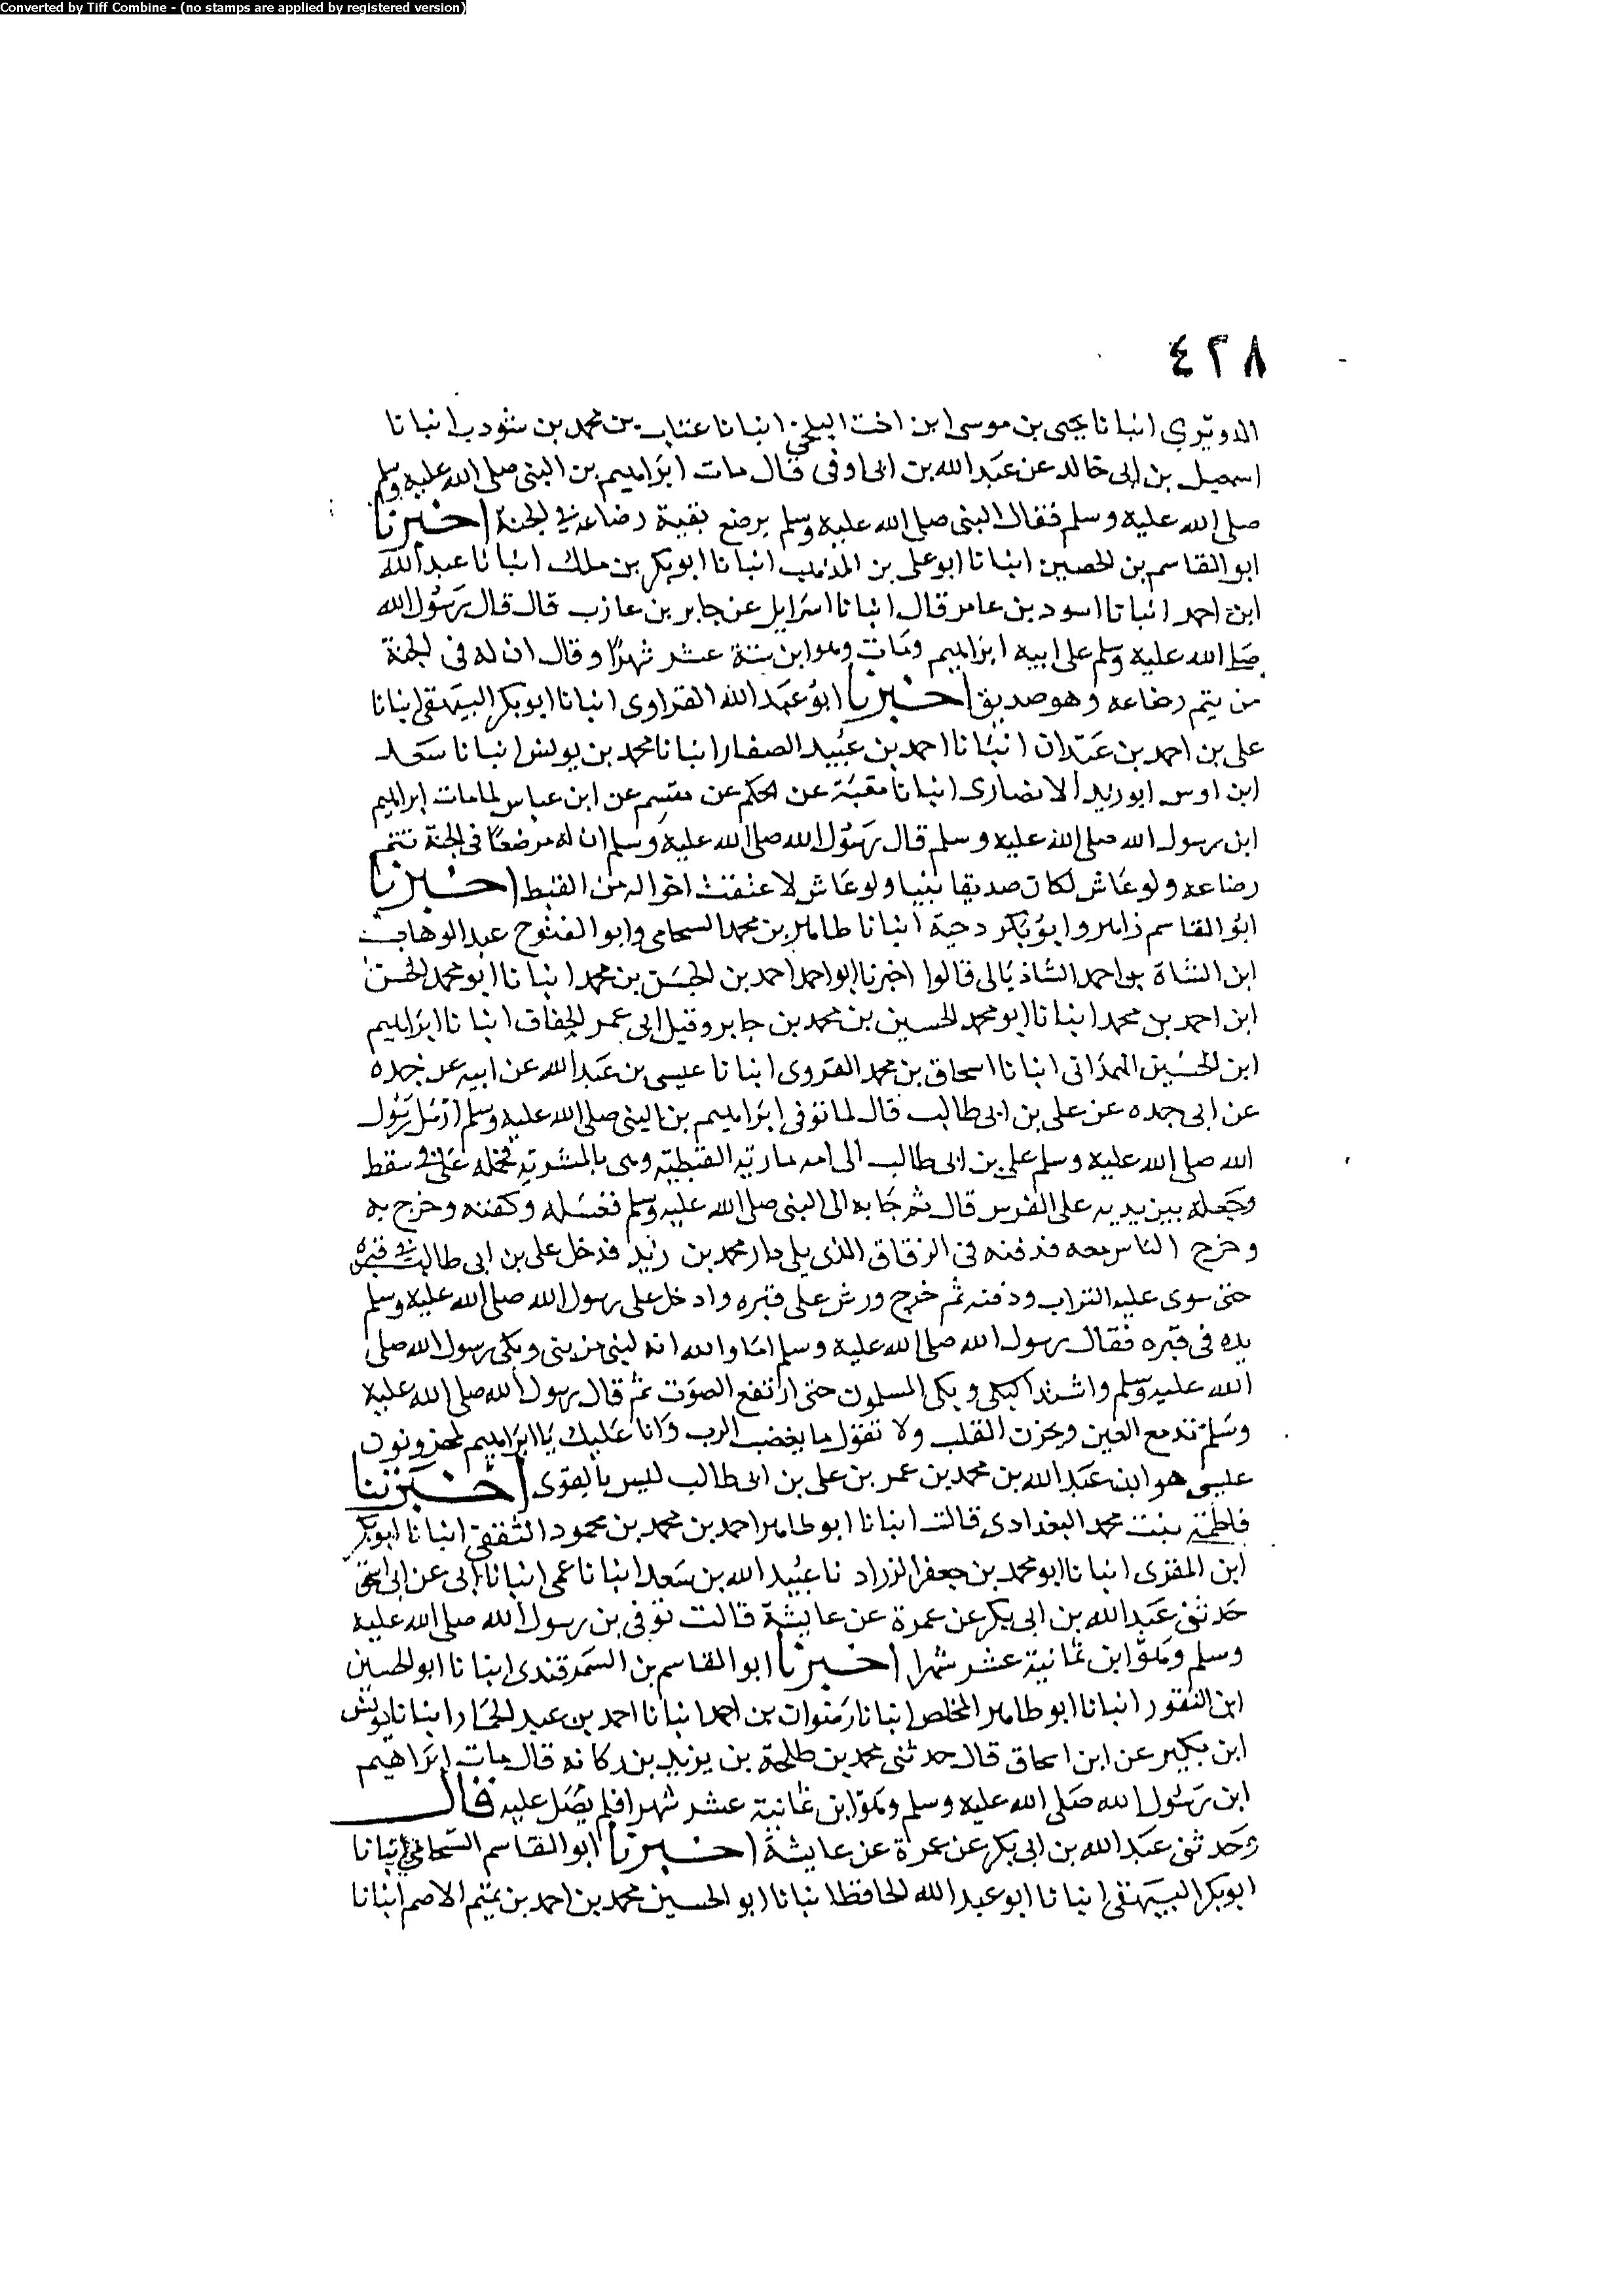 Converted by Tiff Combine - (no stamps are applied by registered version)
٤٢٨
الدويري انبانا يحيى بن موسى ابن اخت البلخي انبانا عتاب بن محمد بن شوذب انبانا
اسمعيل بن ابى خالد عن عبد الله بن ابى اوفى قال مات ابراهيم بن النبى صلى الله عليه وسلم
صلى الله عليه وسلم فقال النبى صلى الله عليه وسلم يرضع بقية رضاعه في الجنة اخبرنا
ابو القاسم بن الحصين انبانا ابو على بن المذهب انبانا ابو بكر بن ملك انبانا عبد الله
ابن احمد انبانا اسود بن عامر قال انبانا اسرايل عن جابر بن عازب قال قال رسول الله
صلى الله عليه وسلم على ابيه ابراهيم ومات وهو ابن ستة عشر شهرًا وقال ان له فى الجنة
من يتم رضاعه وهو صديق اخبرنا ابو عبد الله الفراوى انبانا ابو بكر البيهقى انبانا
على بن احمد بن عبدان انبانا احمد بن عبيد الصفار انبانا محمد بن يونس انبانا سعد
ابن اوس ابو زيد الانصارى انبانا عن الحكم عن مقسم عن ابن عباس لما مات ابراهيم
ابن رسول الله صلى الله عليه وسلم قال رسول الله صلى الله عليه وسلم ان له مرضعًا فى الجنة تتم
رضاعه ولو عاش لكان صديقا نبيا ولو عاش لاعتقت اخواله من القبط اخبرنا
ابو القاسم زاهر وابو بكر دحية انبانا طاهر بن محمد السحامى وابو الفتوح عبد الوهاب
ابن الشاة بن احمد الشاذيالى قالوا اخبرنا ابو احمد احمد بن الحسن بن محمد انبانا ابو محمد الحسن
ابن احمد بن محمد انبانا ابو محمد الحسين بن محمد بن جابر وقيل ابى عمر الخفاف انبانا ابراهيم
ابن الحسين الهمذانى انبانا اسحاق بن محمد الفروى انبانا عيسى بن عبد الله عن ابيه عن جده
عن ابى جده عن على بن ابى طالب قال لما توفى ابراهيم بن النبى صلى الله عليه وسلم ارسل رسول
الله صلى الله عليه وسلم على بن ابى طالب الى امه مارية القبطية وهى بالمشربة فحمله على فى سفط
وجعله بين يديه على الفرس قال ثم جا به الى النبى صلى الله عليه وسلم فغسله وكفنه وخرج به
وخرج الناس معه فدفنه فى الزقاق الذى يلى دار محمد بن زيد فدخل على بن ابى طالب فى قبره
حتى سوى عليه التراب ودفنه ثم خرج ورش على قبره وادخل على رسول الله صلى الله عليه وسلم
يده فى قبره فقال رسول الله صلى الله عليه وسلم اما والله انه لنبى بن نبى وبكى رسول الله صلى
الله عليه وسلم واشتد البكى وبكى المسلمون حتى ارتفع الصوت ثم قال رسول الله صلى الله عليه
وسلم تدمع العين ويحزن القلب ولا نقول ما يغضب الرب وانا عليك يا ابراهيم لمحزونون
عليسى هو ابن عبد الله بن محمد بن عمر بن على بن ابى طالب ليس بالقوى اخبرتنا
فاطمة بنت محمد البغدادى قالت انبانا ابو طاهر احمد بن محمد بن محمود الثقفى انبانا ابو بكر
ابن المقرى انبانا ابو محمد بن جعفر الزراد نا عبيد الله بن سعد انبانا عمى انبانا ابى عن ابى اسحق
حدثنى عبد الله بن ابى بكر عن عمرة عن عايشة قالت توفى بن رسول الله صلى الله عليه
وسلم وهو ابن ثمانية عشر شهرا اخبرنا ابو القاسم بن السمرقندى انبانا ابو الحسين
ابن النقور انبانا ابو طاهر المخلص انبانا رضوان بن احمد انبانا احمد بن عبد الجبار انبانا يونس
ابن بكير عن ابن اسحاق قال حدثنى محمد بن طلحة بن يزيد بن ركانه قال مات ابراهيم
ابن رسول الله صلى الله عليه وسلم وهو ابن ثمانية عشر شهرا فلم يصل عليه قال
وحدثنى عبد الله بن ابى بكر عن عمرة عن عايشة اخبرنا ابو القاسم الشحامى انبانا
ابو بكر البيهقى انبانا ابو عبد الله الحافظ انبانا ابو الحسين محمد بن احمد بن تميم الاصم انبانا